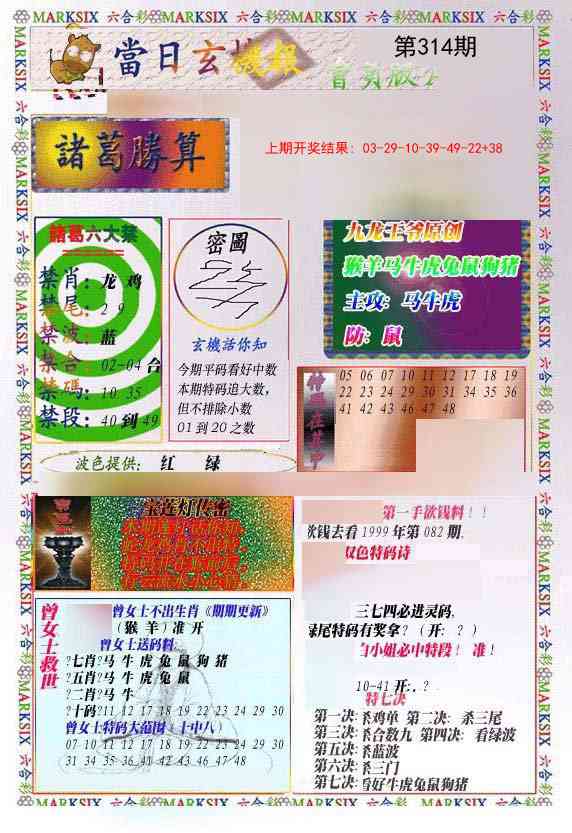 MARKSIX 六合彩 MARKSIX 六合彩 MARKSIX 六合彩 MARKSIX 六合彩
當日玄機報
第314期
諸葛勝算
上期开奖结果: 03-29-10-39-49-22+38
諸葛六大禁
禁肖: 龙 鸡
禁尾: 2 9
禁波: 蓝
禁合: 02-04 合
禁碼: 10 35
禁段: 40 到 49
密圖
玄機話你知
今期平码看好中数
本期特码追大数,
但不排除小数
01 到 20 之数
九龙王爷原创
猴羊马牛虎兔鼠狗猪
主攻: 马牛虎
防: 鼠
特码在其中
05 06 07 10 11 12 17 18 19
22 23 24 29 30 31 34 35 36
41 42 43 46 47 48
波色提供: 红 绿
宝莲灯传密
第一手欲钱料!!
欲钱去看 1999 年第 082 期,
双色特码诗
三七四必进灵码,
绿尾特码有奖拿? (开: ?)
白小姐必中特段! 准!
10-41 开:, ?
特七决
第一决: 杀鸡单 第二决: 杀三尾
第三决: 杀合数九 第四决: 看绿波
第五决: 杀蓝波
第六决: 杀三门
第七决: 看好牛虎兔鼠狗猪
曾女士救世
曾女士不出生肖《期期更新》
(猴 羊) 准 开
曾女士送码料
?七肖?马 牛 虎 兔 鼠 狗 猪
?五肖?马 牛 虎 兔 鼠
?二肖?马 牛
?十码?11 12 17 18 19 22 23 24 29 30
曾女士特码大范围(十中八)
07 10 11 12 17 18 19 22 23 24 29 30
31 34 35 36 41 42 43 46 47 48
MARKSIX 六合彩 MARKSIX 六合彩 MARKSIX 六合彩 MARKSIX 六合彩